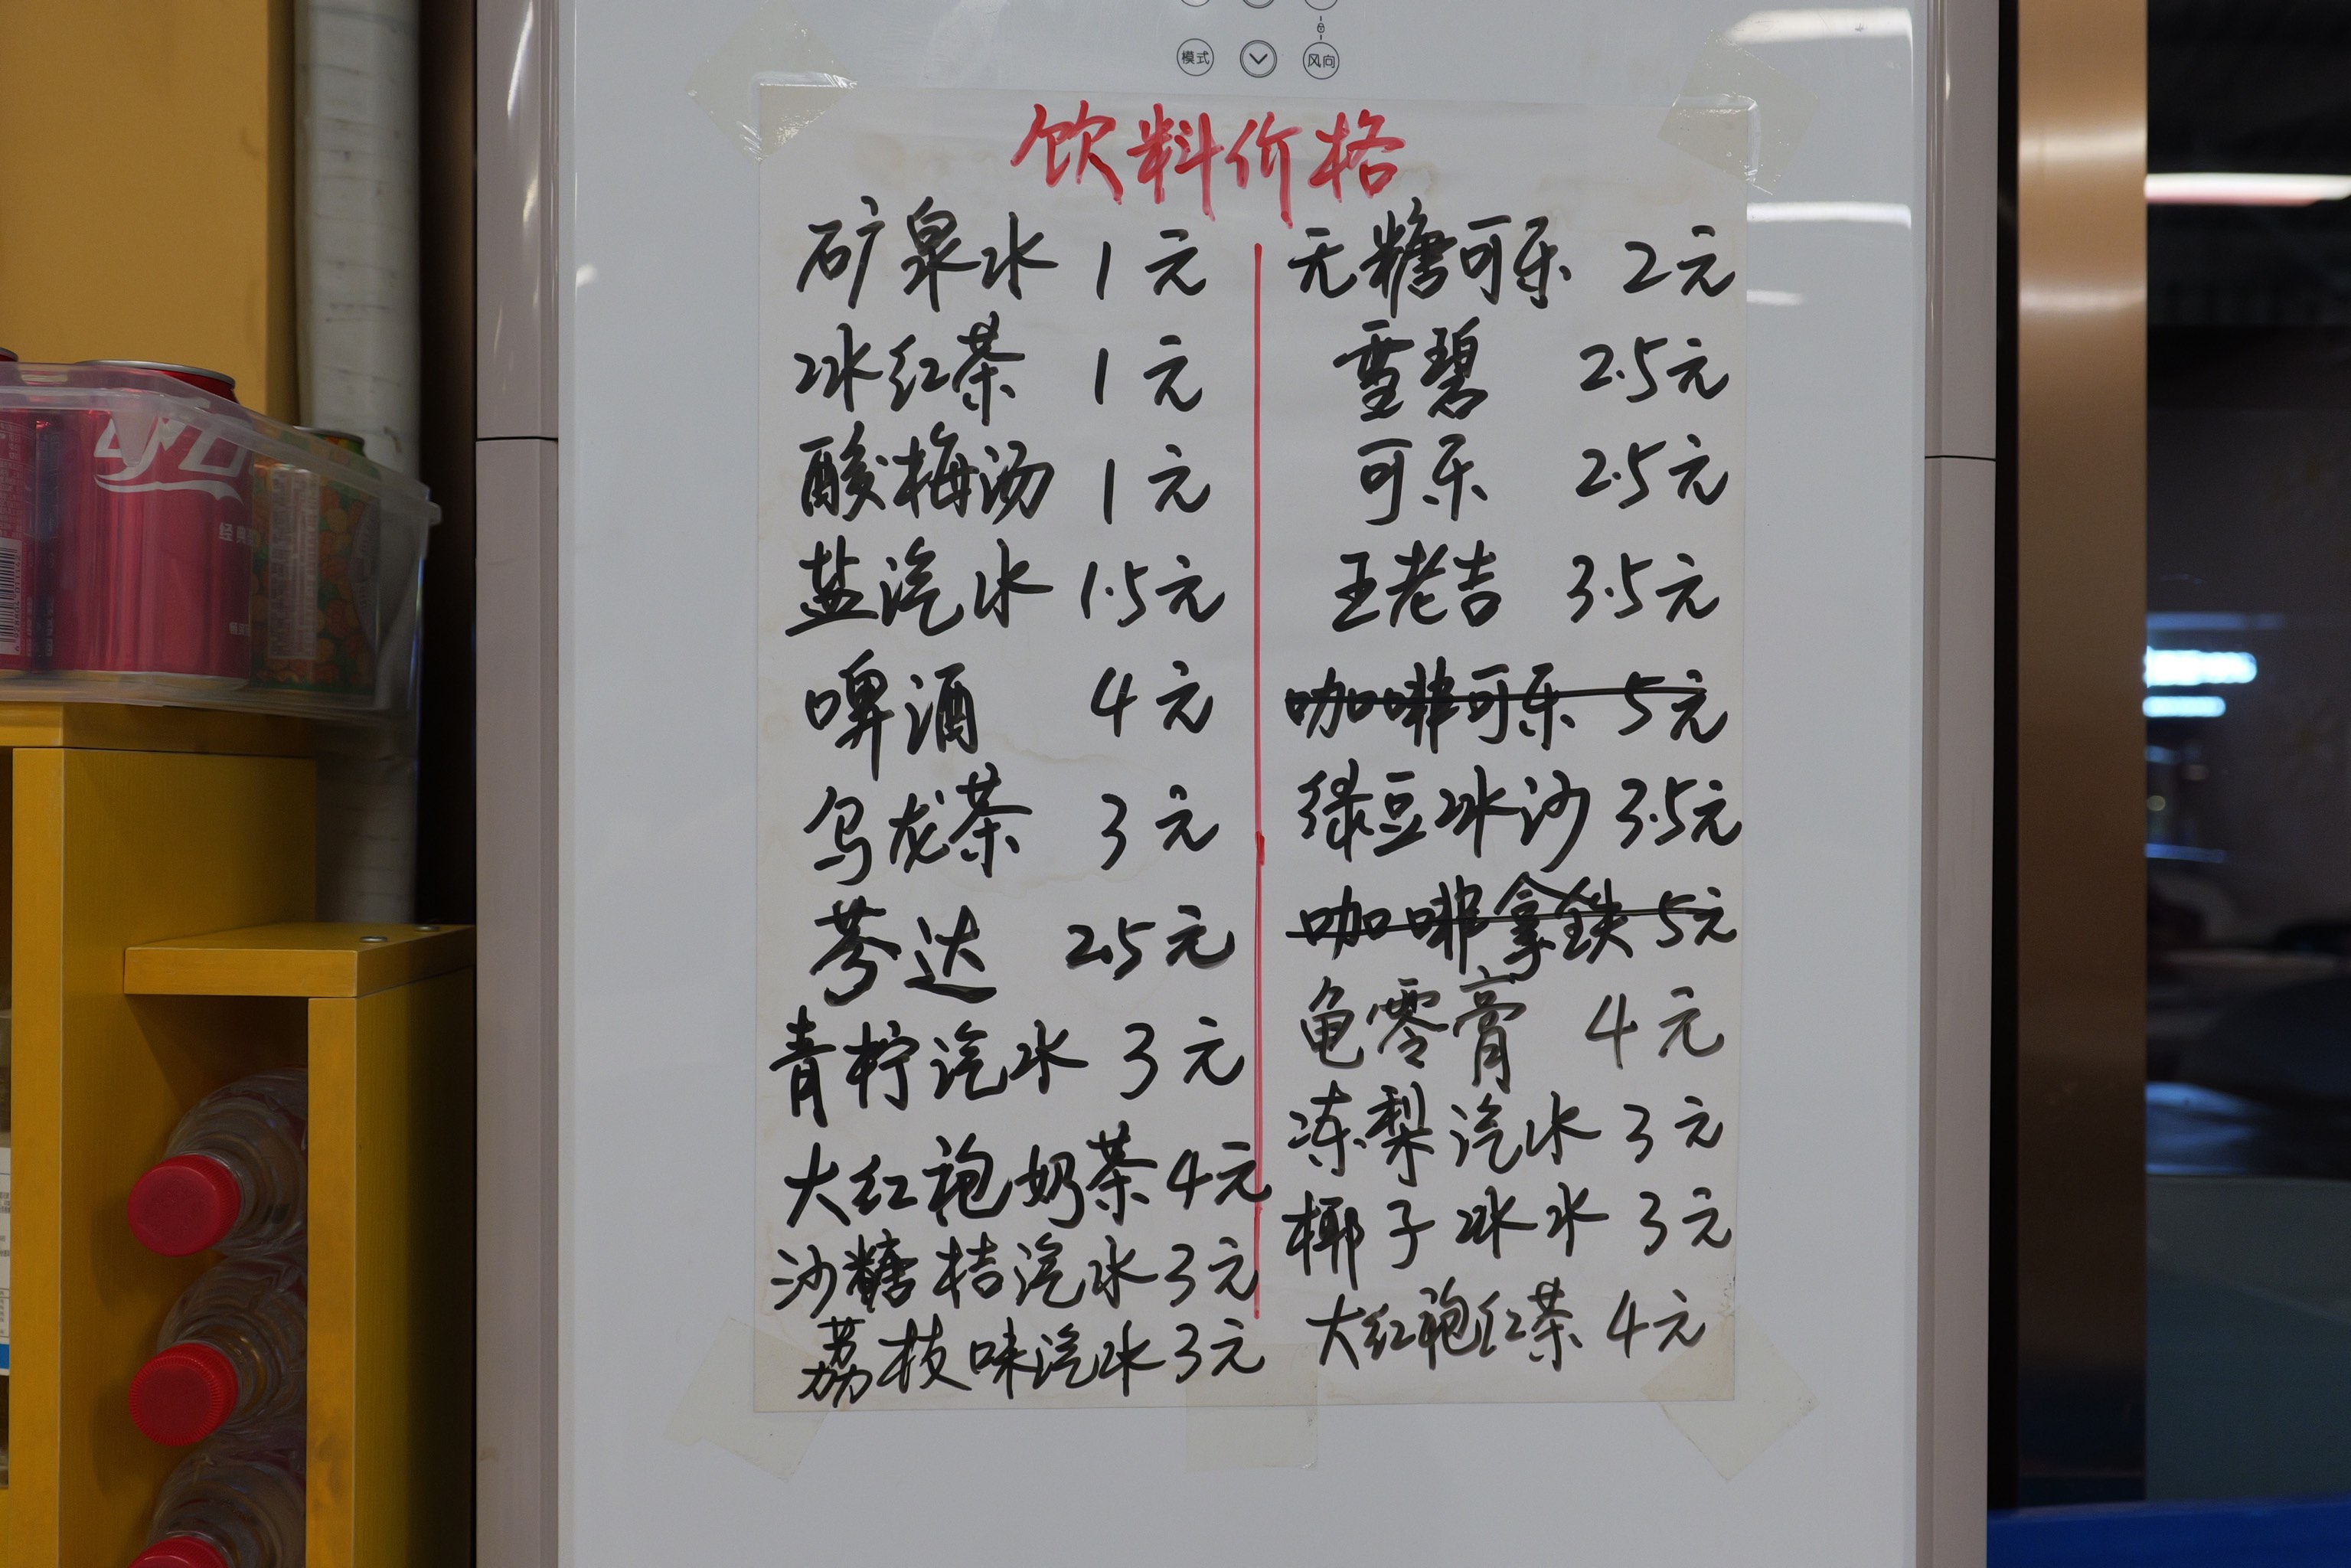 模式 风向
饮料价格
矿泉水 1元
冰红茶 1元
酸梅汤 1元
盐汽水 1.5元
啤酒 4元
乌龙茶 3元
芬达 2.5元
青柠汽水 3元
大红袍奶茶 4元
沙糖桔汽水 3元
荔枝味汽水 3元
无糖可乐 2元
雪碧 2.5元
可乐 2.5元
王老吉 3.5元
咖啡可乐 5元
绿豆冰沙 3.5元
咖啡拿铁 5元
龟零膏 4元
冻梨汽水 3元
椰子冰水 3元
大红袍红茶 4元
经典